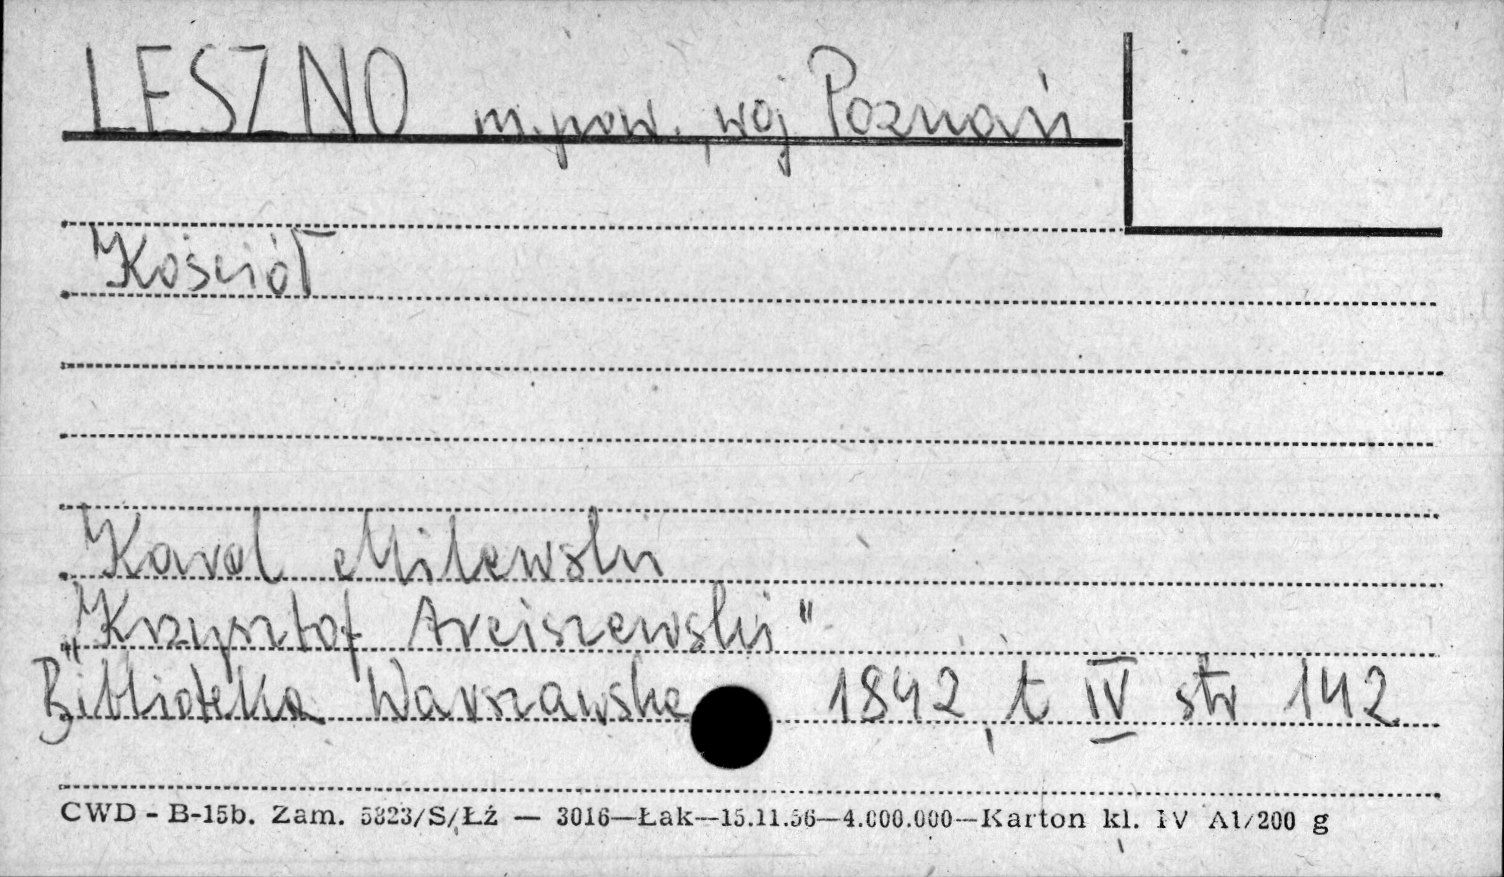 LESZNO m. pow., woj Poznań
Kościół
Karol Milewski
„Krzysztof Arciszewski"
Biblioteka Warszawska 1842, t IV str 142
CWD - B-15b. Zam. 5323/S/Łź — 3016—Łak—15.11.56—4.000.000—Karton kl. IV A1/200 g